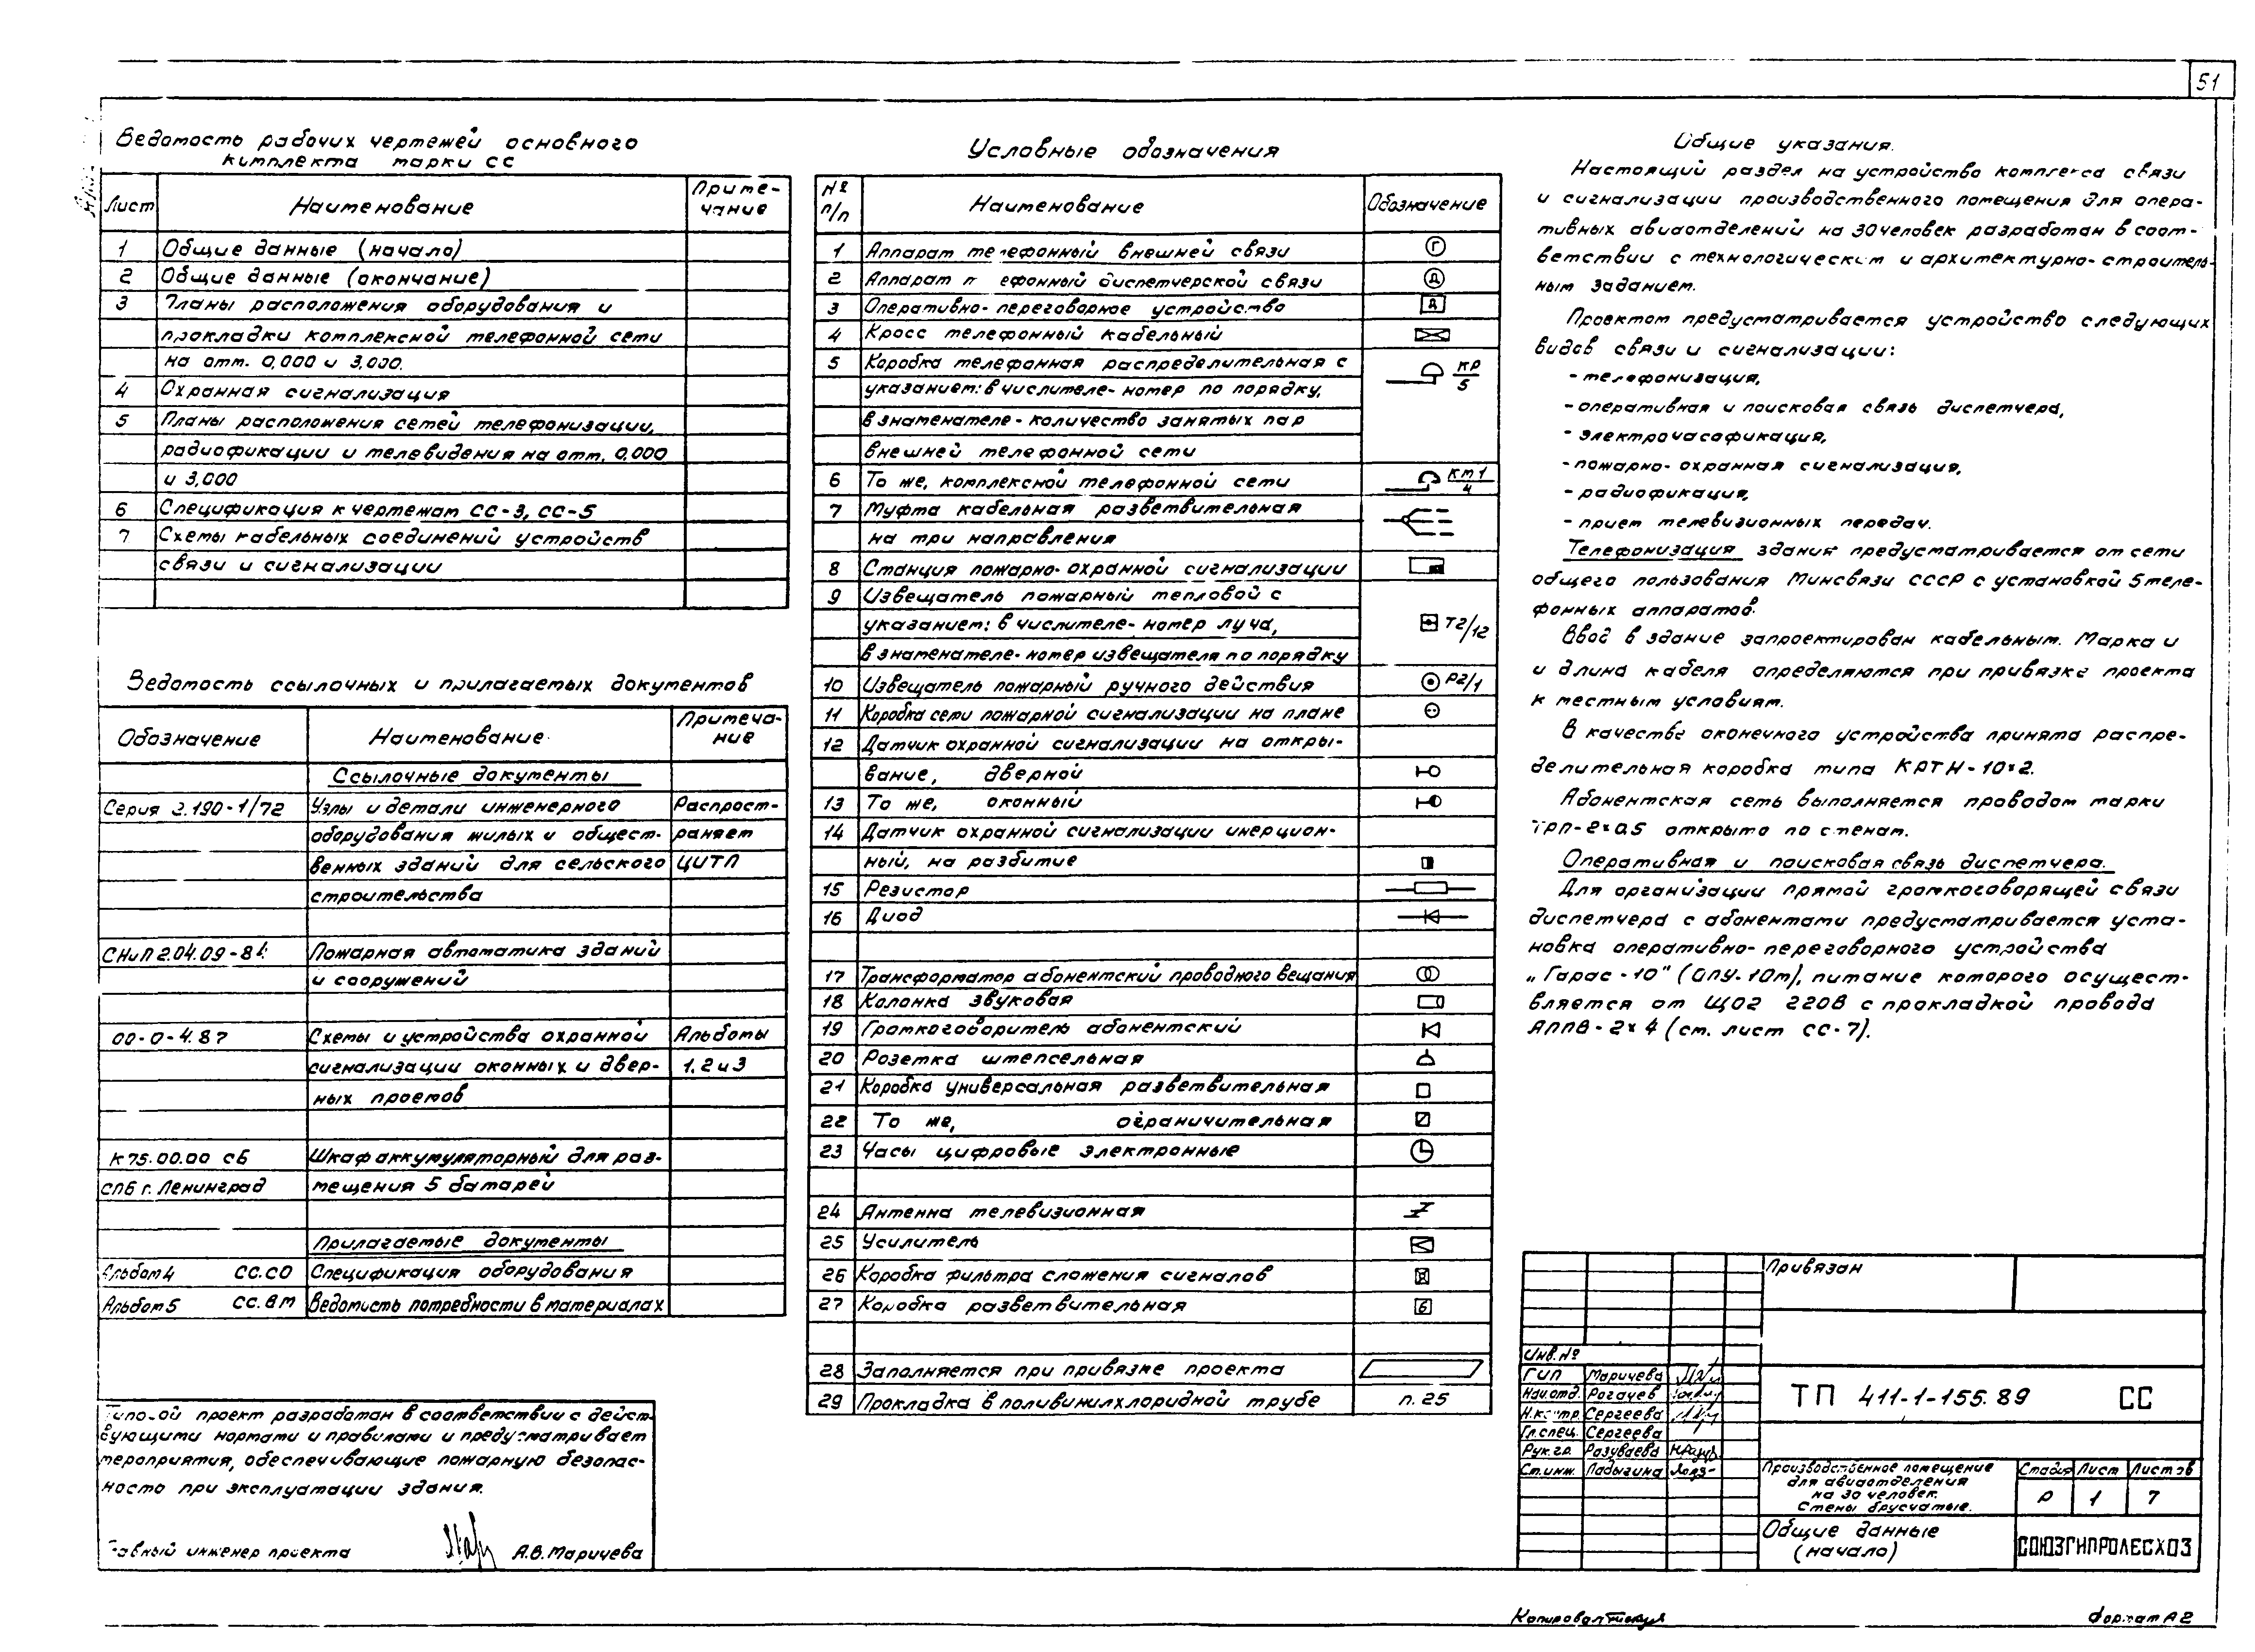 51
Ведомость рабочих чертежей основного
комплекта марки СС
Лист Наименование Приме-
чание
1 Общие данные (начало)
2 Общие данные (окончание)
3 Планы расположения оборудования и
прокладки комплексной телефонной сети
на отм. 0,000 и 3,000.
4 Охранная сигнализация
5 Планы расположения сетей телефонизации,
радиофикации и телевидения на отм. 0,000
и 3,000
6 Спецификация к чертежам СС-3, СС-5
7 Схемы кабельных соединений устройств
связи и сигнализации
Ведомость ссылочных и прилагаемых документов
Обозначение Наименование Примеча-
ние
Ссылочные документы
Серия 2.190-1/72 Узлы и детали инженерного Распрост-
оборудования жилых и общест- раняет
венных зданий для сельского ЦИТП
строительства
СНиП 2.04.09-84 Пожарная автоматика зданий
и сооружений
00-0-4.87 Схемы и устройства охранной Альбомы
сигнализации оконных и двер- 1, 2 и 3
ных проемов
К75.00.00 сб Шкаф аккумуляторный для раз-
СПБ г. Ленинград мещения 5 батарей
Прилагаемые документы
Альбом 4 СС.СО Спецификация оборудования
Альбом 5 СС.ВМ Ведомость потребности в материалах
Типовой проект разработан в соответствии с дейст-
вующими нормами и правилами и предусматривает
мероприятия, обеспечивающие пожарную безопас-
ность при эксплуатации здания.
Главный инженер проекта А.В. Маричева
Условные обозначения
№ п/п Наименование Обозначение
1 Аппарат телефонный внешней связи Г
2 Аппарат телефонный диспетчерской связи Д
3 Оперативно-переговорное устройство Д
4 Кросс телефонный кабельный
5 Коробка телефонная распределительная с КР
указанием: в числителе - номер по порядку, 5
в знаменателе - количество занятых пар
внешней телефонной сети
6 То же, комплексной телефонной сети КТ1
4
7 Муфта кабельная разветвительная
на три направления
8 Станция пожарно-охранной сигнализации
9 Извещатель пожарный тепловой с
указанием: в числителе - номер луча, Т2/12
в знаменателе - номер извещателя по порядку
10 Извещатель пожарный ручного действия Р2/1
11 Коробка сети пожарной сигнализации на плане
12 Датчик охранной сигнализации на откры-
вание, дверной
13 То же, оконный
14 Датчик охранной сигнализации инерцион-
ный, на разбитие
15 Резистор
16 Диод
17 Трансформатор абонентский проводного вещания
18 Колонка звуковая
19 Громкоговоритель абонентский
20 Розетка штепсельная
21 Коробка универсальная разветвительная
22 То же, ограничительная
23 Часы цифровые электронные
24 Антенна телевизионная
25 Усилитель
26 Коробка фильтра сложения сигналов
27 Коробка разветвительная 6
28 Заполняется при привязке проекта
29 Прокладка в поливинилхлоридной трубе п.25
Общие указания.
Настоящий раздел на устройство комплекса связи
и сигнализации производственного помещения для опера-
тивных авиаотделений на 30 человек разработан в соот-
ветствии с технологическим и архитектурно-строитель-
ным заданием.
Проектом предусматривается устройство следующих
видов связи и сигнализации:
- телефонизация,
- оперативная и поисковая связь диспетчера,
- электрочасофикация,
- пожарно-охранная сигнализация,
- радиофикация,
- прием телевизионных передач.
Телефонизация здания предусматривается от сети
общего пользования Минсвязи СССР с установкой 5 теле-
фонных аппаратов.
Ввод в здание запроектирован кабельным. Марка и
и длина кабеля определяются при привязке проекта
к местным условиям.
В качестве оконечного устройства принята распре-
делительная коробка типа КРТН-10×2.
Абонентская сеть выполняется проводом марки
ТРП-2×0,5 открыто по стенам.
Оперативная и поисковая связь диспетчера.
Для организации прямой громкоговорящей связи
диспетчера с абонентами предусматривается уста-
новка оперативно-переговорного устройства
„Гарас-10" (ОПУ-10м), питание которого осущест-
вляется от ЩО2 220В с прокладкой провода
АППВ-2×4 (см. лист СС-7).
Привязан
Инв.№
ГИП Маричева
Нач.отд. Рогачев
Н.контр. Сергеева
Гл.спец. Сергеева
Рук.гр. Разуваева
Ст.инж. Ладыгина
ТП 411-1-155.89 СС
Производственное помещение
для авиаотделения
на 30 человек.
Стены брусчатые.
Стадия Лист Листов
Р 1 7
Общие данные
(начало)
СОЮЗГИПРОЛЕСХОЗ
Копировал
Формат А2